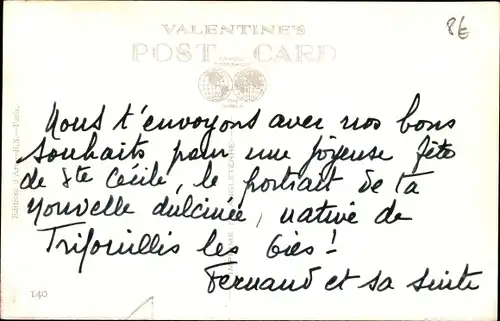 VALENTINE'S
POST CARD
FAMOUS
THROUGHOUT
THE
WORLD
8€
Nous t'envoyons avec nos bons
souhaits pour une joyeuse fête
de Ste Cécile, le portrait de ta
nouvelle dulcinée, native de
Trifouillis les Oies!
Fernand et sa suite
140